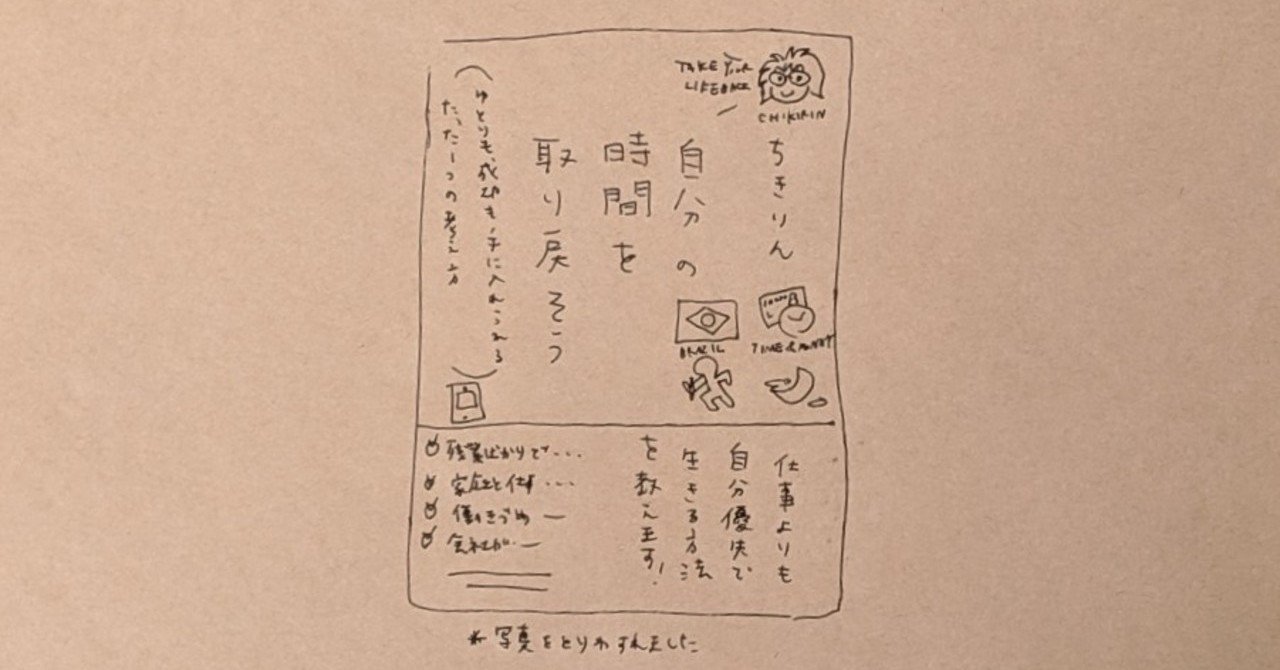 TAKE YOUR
LIFE BACK
CHIKIRIN
ちきりん
自分の
時間を
取り戻そう
(ゆとりも、成功も手に入れられる
たった一つの考え方)
BRAZIL
TIME & MONEY
仕事よりも
自分優先で
生きる方法
を教えます!
残業ばかりで・・・
家庭と仕事・・・
働きづめ ー
会社が・ー
* 写真をとりわすれました